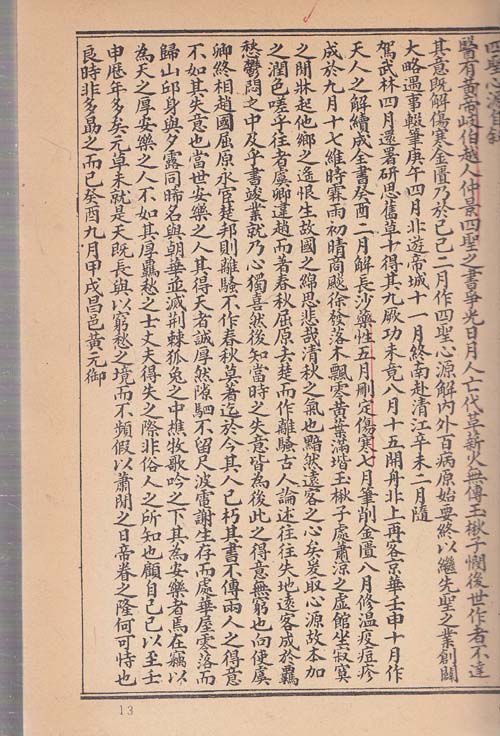 四聖心源自敘
醫有黃帝岐伯越人仲景四聖之書爭光日月人亡代革薪火無傳玉楸子憫後世作者不達
其意既解傷寒金匱乃於己巳二月作四聖心源解內外百病原始要終以繼先聖之業創闢
大略遇事輟筆庚午四月北遊帝城十一月終南赴清江辛未二月隨
駕武林四月還署研思舊草十得其九厥功未竟八月十五開舟北上再客京華壬申十月作
天人之解續成全書癸酉二月解長沙藥性五月刪定傷寒七月筆削金匱八月修溫疫痘疹
成於九月十七維時霖雨初晴商飈徐發落木飄零黃葉滿堦玉楸子處蕭涼之虛館坐寂寞
之閒牀起他鄉之遙恨生故國之綿思悲哉清秋之氣也黯然遠客之心矣爰取心源故本加
之潤色嗟乎往者虞卿違趙而著春秋屈原去楚而作離騷古人論述往往失地遠客成於羈
愁鬱悶之中及乎書竣業就乃心獨喜然後知當時之失意皆為後此之得意無窮也向使虞
卿終相趙國屈原永宦楚邦則離騷不作春秋莫著迄於今其人已朽其書不傳兩人之得意
不如其失意也當世安樂之人其得天者誠厚然隙駟不留尺波電謝生存而處華屋零落而
歸山邱身與夕露同晞名與朝華並滅荆棘狐兔之中樵牧歌吟之下其為安樂者焉在竊以
為天之厚安樂之人不如其厚羈愁之士丈夫得失之際非俗人之所知也顧自己巳以至壬
申歷年多矣元草未就是天既長與以窮愁之境而不頻假以蕭閒之日帝眷之隆何可恃也
良時非多勗之而已癸酉九月甲戌昌邑黃元御
13